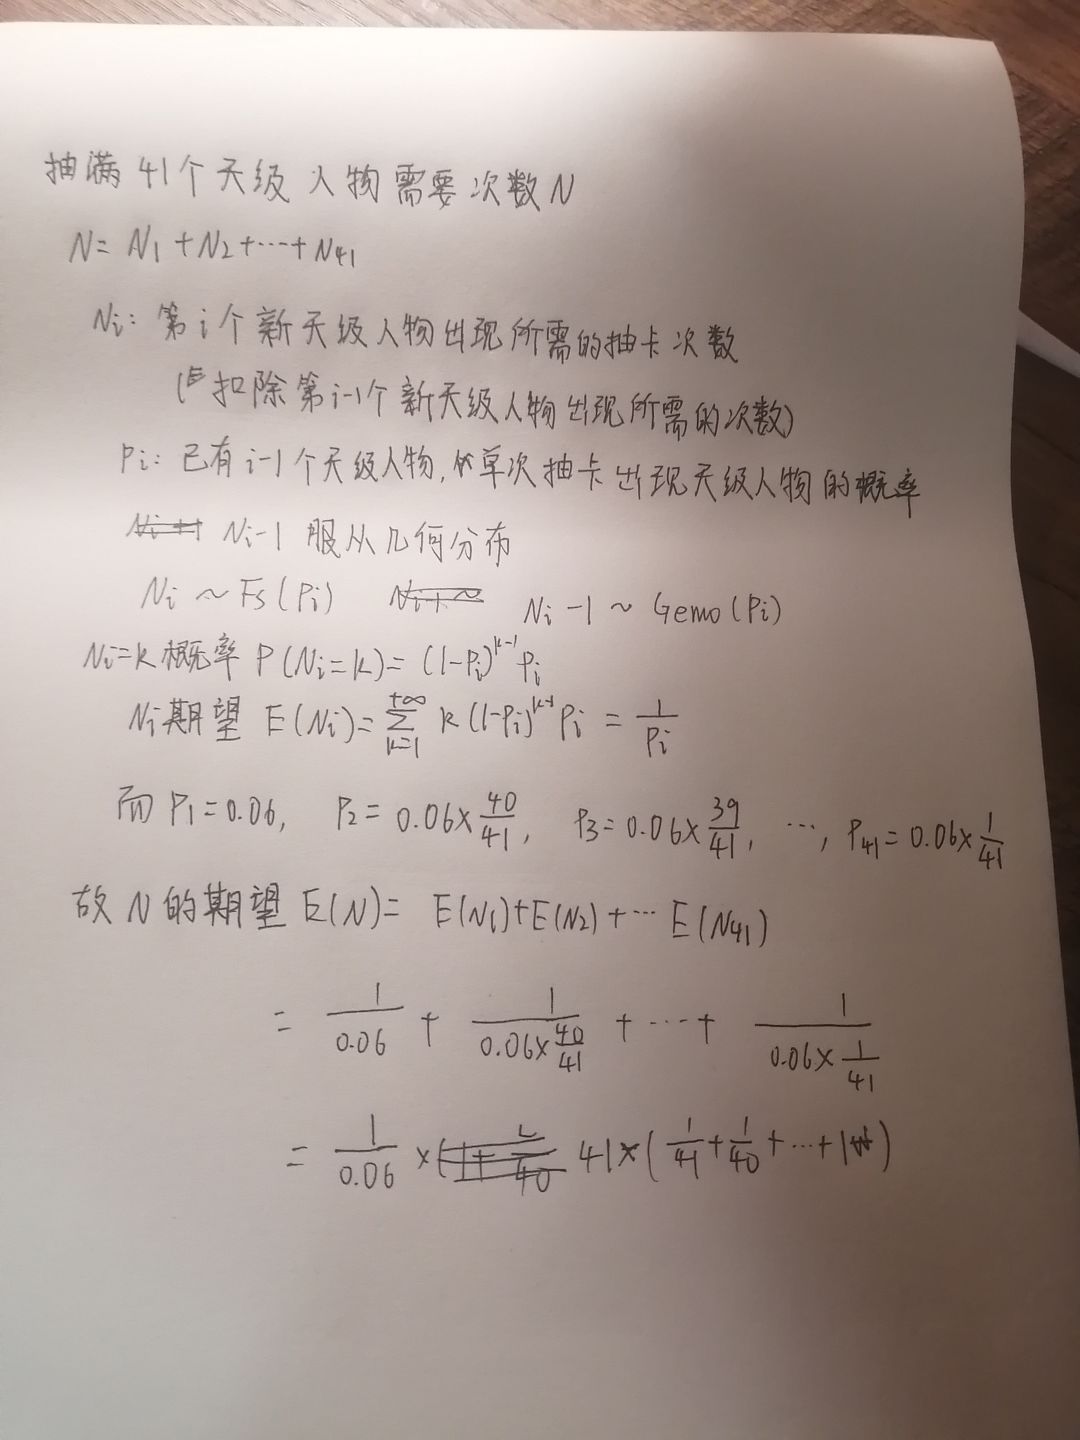 抽满41个天级人物需要次数N
N=N1+N2+…+N41
Ni:第i个新天级人物出现所需的抽卡次数
(扣除第i-1个新天级人物出现所需的次数)
Pi:已有i-1个天级人物,单次抽卡出现天级人物的概率
Ni-1服从几何分布
Ni~Fs(Pi) Ni-1~Gemo(Pi)
Ni=k概率P(Ni=k)=(1-Pi)^{k-1}Pi
Ni期望E(Ni)=∑_{k=1}^{+∞} k(1-Pi)^{k-1}Pi=1/Pi
而P1=0.06, P2=0.06×40/41, P3=0.06×39/41, …, P41=0.06×1/41
故N的期望E(N)=E(N1)+E(N2)+…E(N41)
=1/0.06+1/(0.06×40/41)+…+1/(0.06×1/41)
=1/0.06×41×(1/41+1/40+…+1)